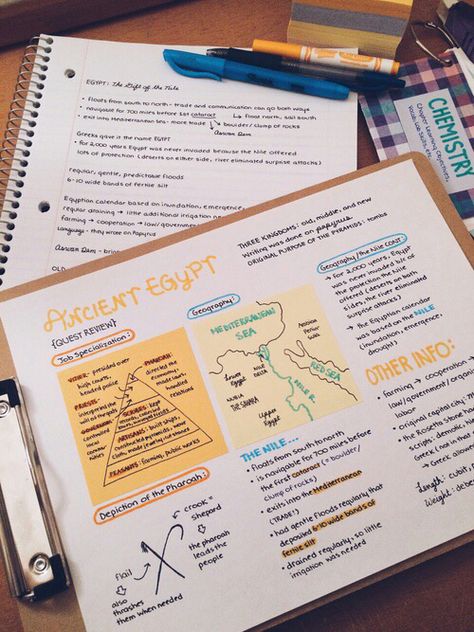 EGYPT: The Gift of the Nile
• floats from south to north - trade and communication can go both ways
• navigable for 700 miles before 1st cataract ↳ float north, sail south
• exit into Mediterranean sea - more trade boulder/clump of rocks
Aswan Dam
Greeks gave it the name EGYPT
• for 2,000 years Egypt was never invaded because the Nile offered
lots of protection (deserts on either side, river eliminated surprise attacks)
regular, gentle, predictable floods
6-10 wide bands of fertile silt
Egyptian calendar based on inundation, emergence,
regular draining → little additional irrigation
farming → cooperation → law/government
Language - they wrote on Papyrus
Aswan Dam -
OLD
CHEMISTRY
THREE KINGDOMS: old, middle, and new
Writing was done on papyrus
ORIGINAL PURPOSE OF THE PYRAMIDS: tombs
ANCIENT EGYPT
{QUEST REVIEW}
Job Specialization:
VIZIER: presided over
high courts,
headed police
PRIESTS:
interpreted the
will of the gods
GOVERNORS:
controlled
local
PHAROAH:
directed the
economy,
made laws,
handled
relations
SCRIBES: kept
ARTISANS: built ships,
constructed pyramids, wove
cloth, made jewelry, cut stones
PEASANTS: farming, public works
Geography:
MEDITERRANEAN
SEA
Lower
Egypt
NILE
DELTA
NUBIA
THE SAHARA
Upper
Egypt
NILE R.
RED SEA
Geography/the Nile CONT.
→ for 2,000 years, Egypt
was never invaded b/c of
the protection the Nile
offered (deserts on both
sides, the river eliminated
surprise attacks)
→ the Egyptian calendar
was based on the NILE
(inundation, emergence,
drought)
OTHER INFO:
• farming → cooperation
law/government/organized
labor
• original capital city:
• the Rosetta Stone
scripts: demotic,
Greek
→ Greek
Length: cubit
Weight: deben
THE NILE...
• floats from south to north
• is navigable for 700 miles before
the first cataract (= boulder/
clump of rocks)
• exits into the Mediterranean
(TRADE!)
• had gentle floods regularly that
deposited 6-10 wide bands of
fertile silt
• drained regularly, so little
irrigation was needed
Depiction of the Pharoah:
crook =
shepard
↳ the pharoah
leads the
people
flail
↳ also
thrashes
them when needed